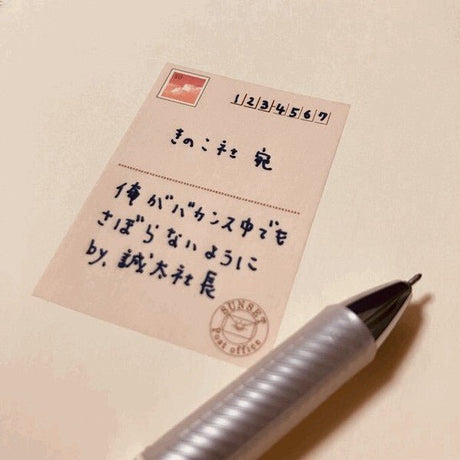 1234567
きのこ社 宛
俺がバカンス中でも
さぼらないように
by. 誠太社長
SUNSET
Post office